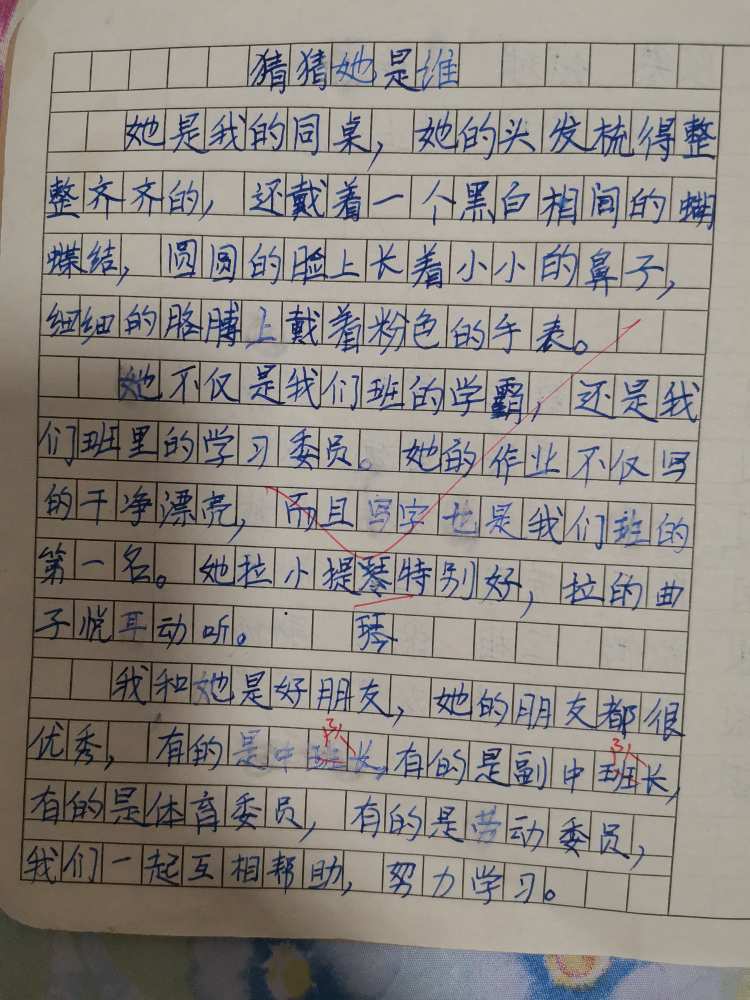 猜猜她是维
她是我的同桌，她的头发梳得整
整齐齐的，还戴着一个黑白相间的蝴
蝶结，圆圆的脸上长着小小的鼻子，
细细的胳膊上戴着粉色的手表。
她不仅是我们班的学霸，还是我
们班里的学习委员。她的作业不仅写
的干净漂亮，而且写字也是我们班的
第一名。她拉小提琴特别好，拉的曲
子悦耳动听。琴
我和她是好朋友，她的朋友都很
队 队
优秀，有的是中班长，有的是副中班长，
有的是体育委员，有的是劳动委员，
我们一起互相帮助，努力学习。